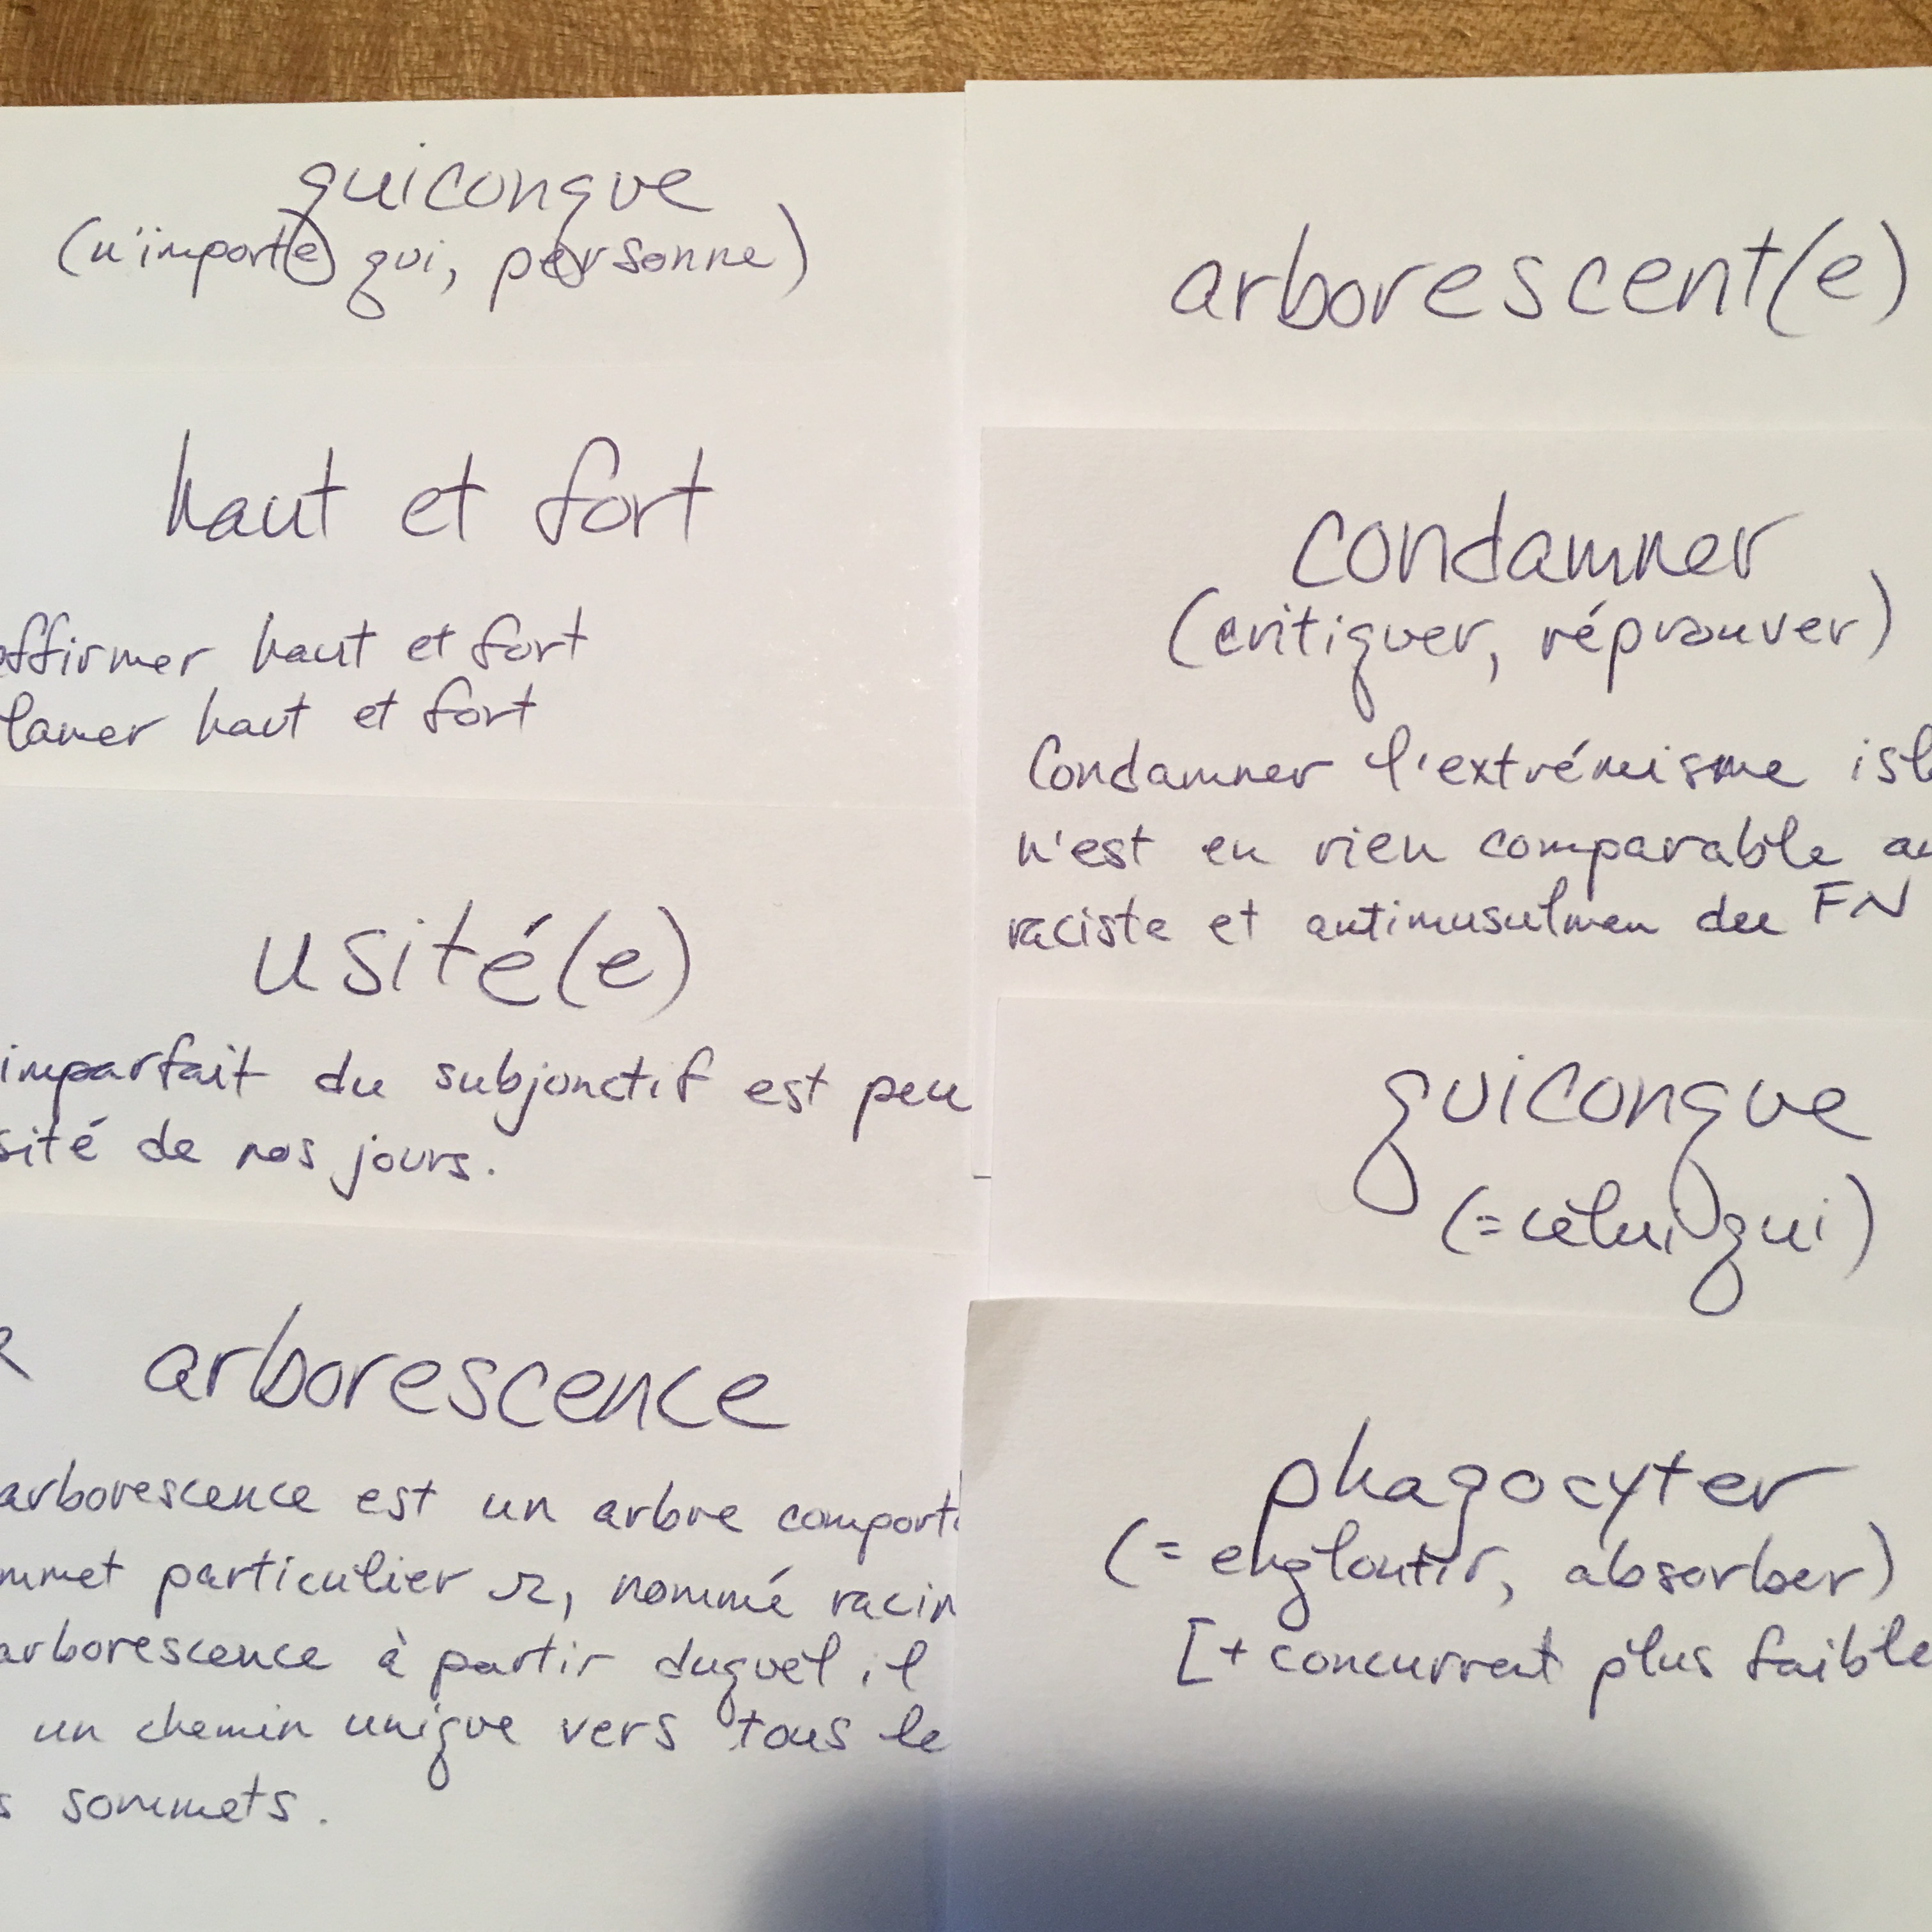 quiconque
(n'importe qui, personne)
haut et fort
affirmer haut et fort
clamer haut et fort
usité(e)
imparfait du subjonctif est peu
usité de nos jours.
arborescence
arborescence est un arbre comport
sommet particulier r, nommé racin
arborescence à partir duquel il
un chemin unique vers tous le
s sommets.
arborescent(e)
condamner
(critiquer, réprouver)
Condamner l'extrémisme isl
n'est en rien comparable au
raciste et antimusulman du FN
quiconque
(=celui qui)
phagocyter
(= engloutir, absorber)
[+ concurrent plus faible